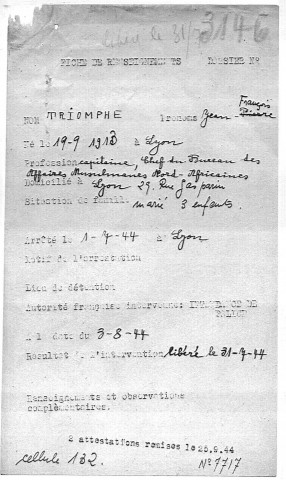 libéré le 31/7
3146
FICHE DE RENSEIGNEMENTS DOSSIER N°
François
NOM TRIOMPHE Prénoms Jean-Pierre
Né le 19-9 1913 à Lyon
Profession capitaine, Chef du Bureau des
Affaires Musulmanes Nord-Africaines
Domicilié à Lyon 29, Rue Gasparin
Situation de famille marié 3 enfants.
Arrêté le 1-7-44 à Lyon
Motif de l'arrestation
Lieu de détention
Autorité française intervenue: INTENDANCE DE
POLICE
A la date du 3-8-44
Résultat de l'intervention libéré le 31-7-44
Renseignements et observations
complémentaires.
2 attestations remises le 25.9.44
cellule 132. N° 7717